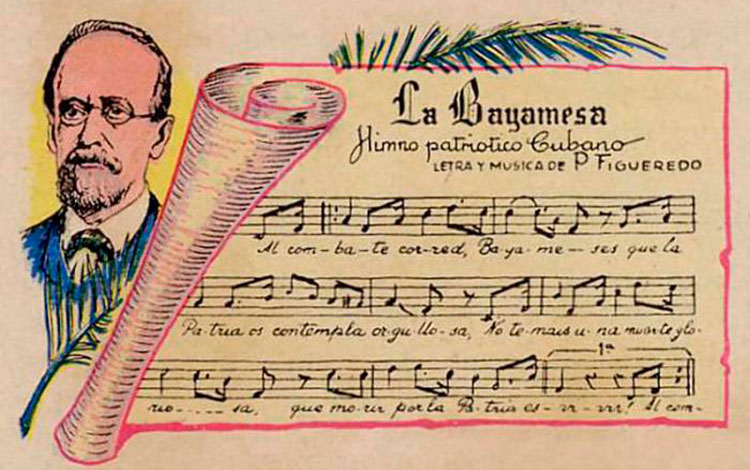 La Bayamesa
Himno patriotico Cubano
LETRA Y MUSICA DE P FIGUEREDO
Al com-ba-te cor-red, Ba-ya-me-ses que la
Pa-tria os contempla or-gu-llo-sa, No te-mais u-na muerte glo-
1ª
rio-----sa, que mo-rir por la Pa-tria es-vi-vir! Al com-